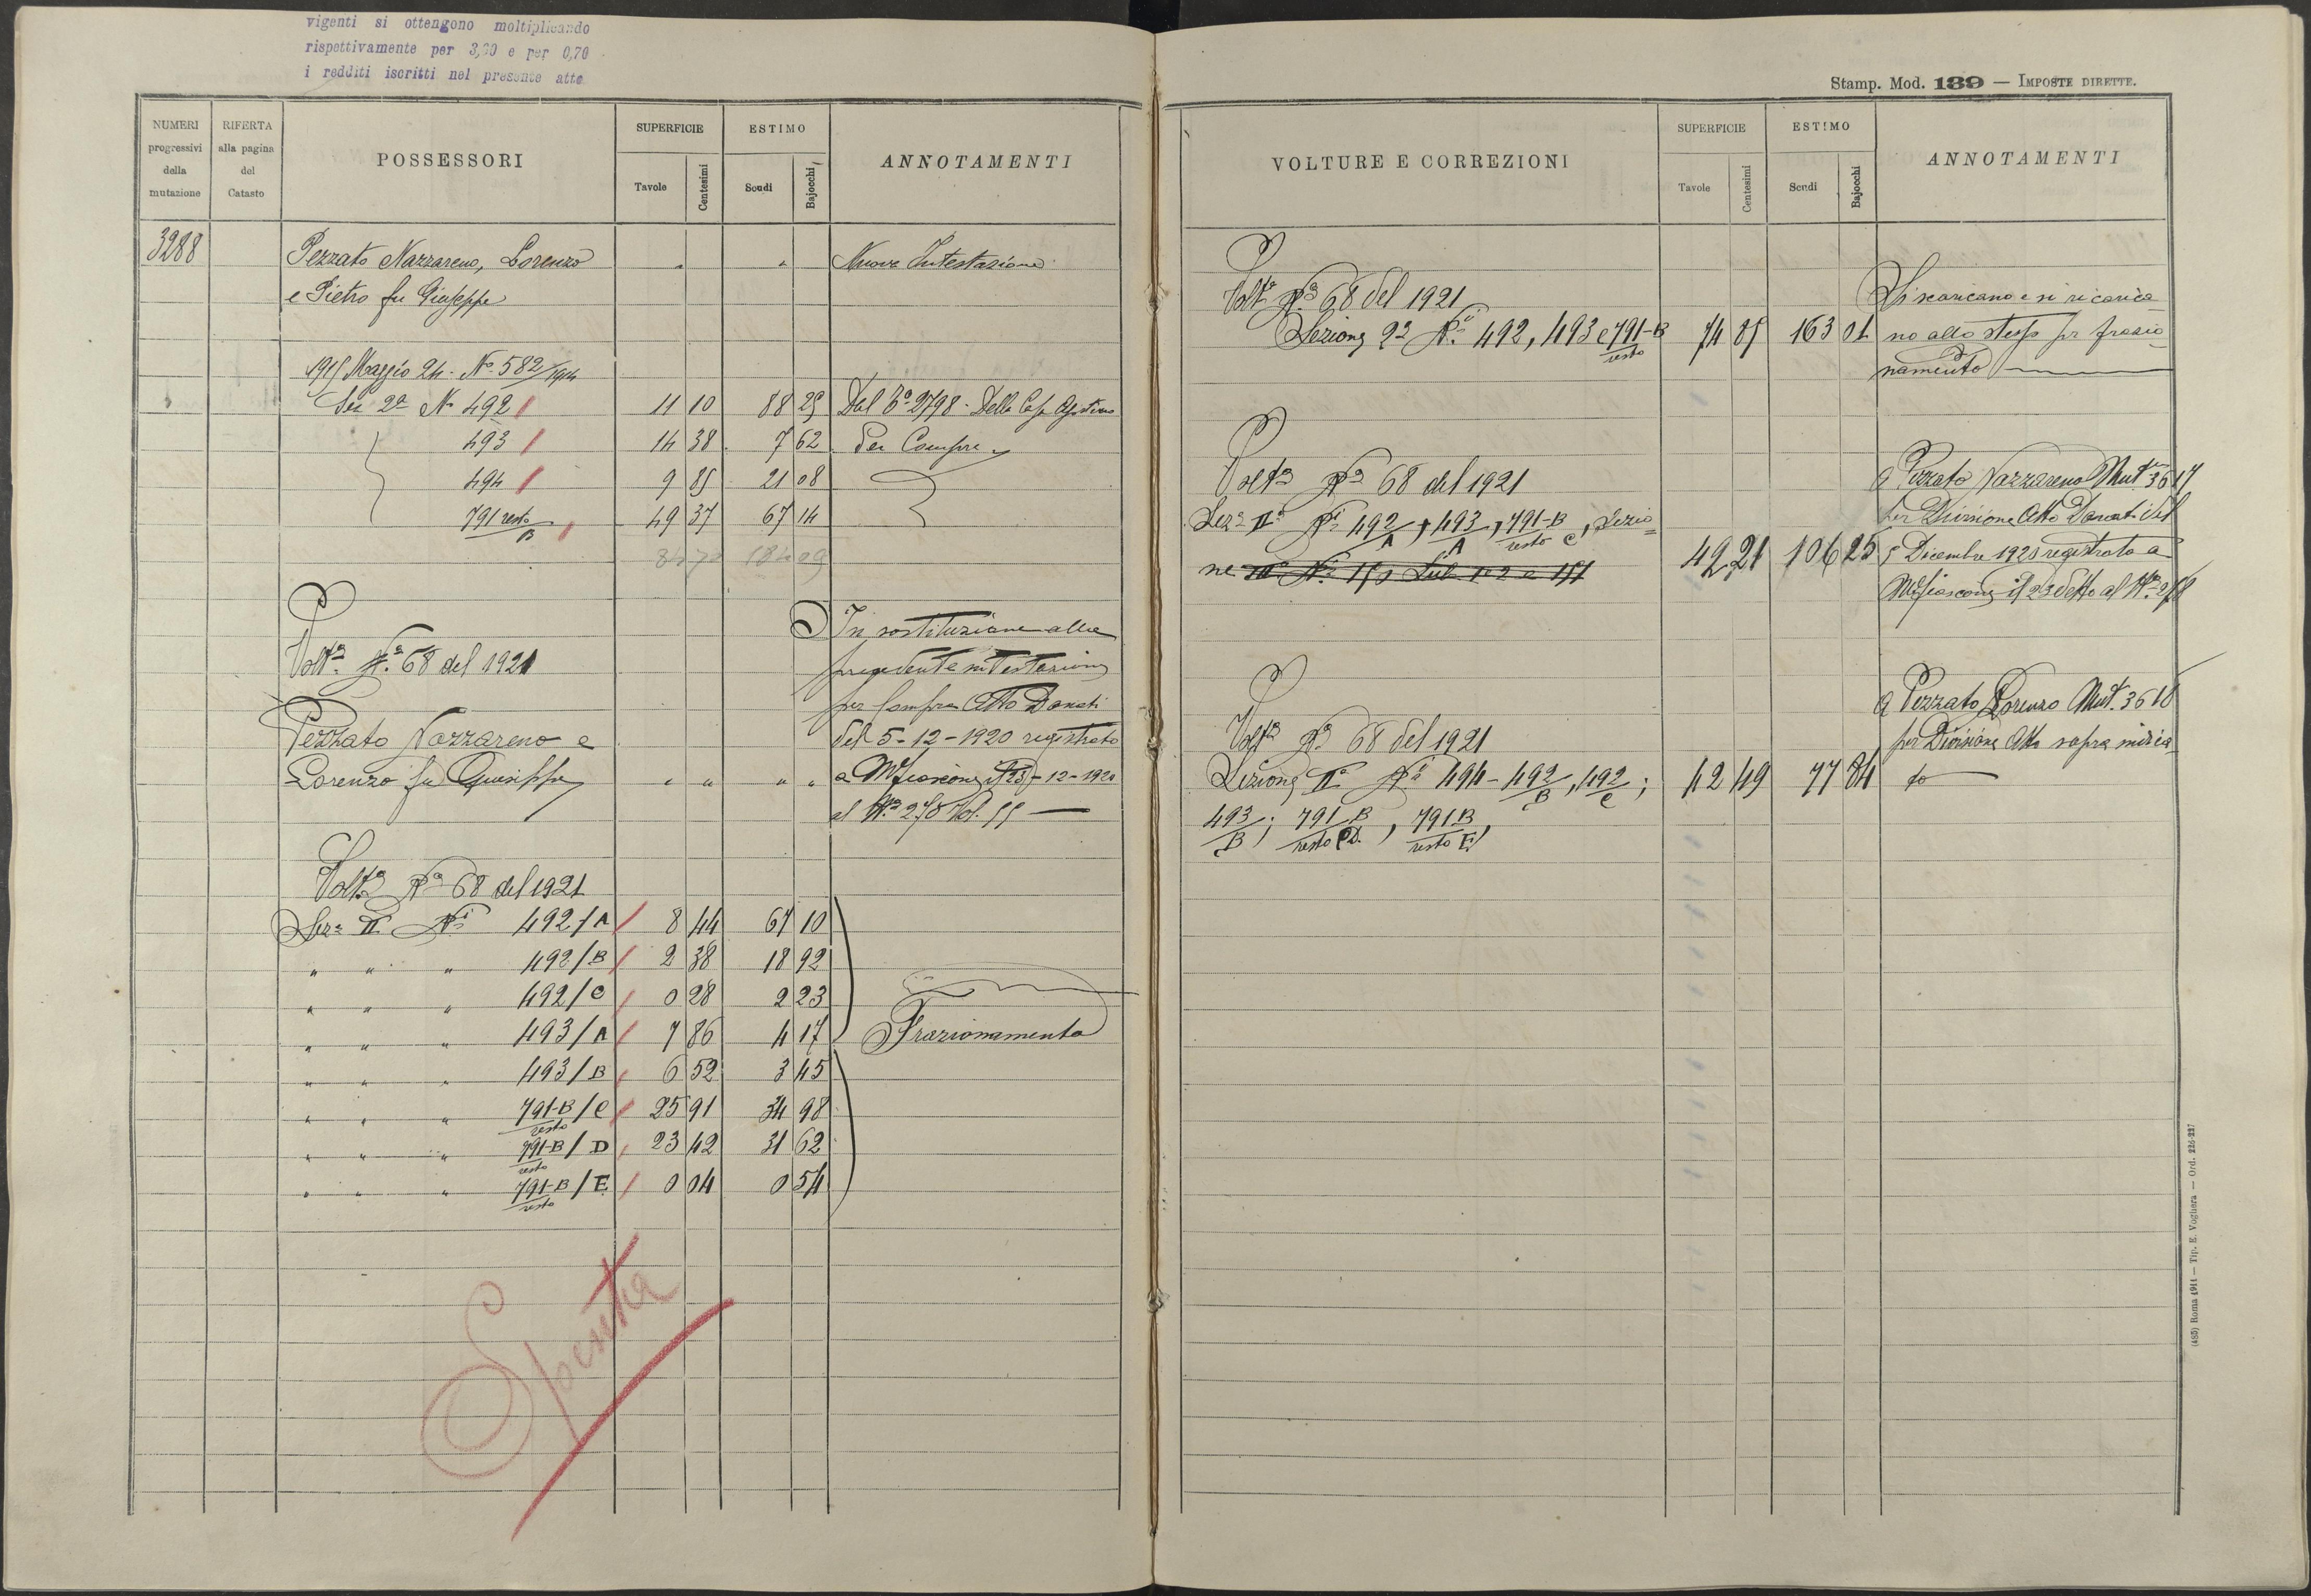 vigenti si ottengono moltiplicando
rispettivamente per 3,60 e per 0,70
i redditi iscritti nel presente atto
NUMERI progressivi della mutazione
RIFERTA alla pagina del Catasto
POSSESSORI
SUPERFICIE
Tavole
Centesimi
ESTIMO
Scudi
Bajocchi
ANNOTAMENTI
3288 Pezzato Nazzareno, Lorenzo " " Nuova Intestazione
e Pietro fu Giuseppe
1915 Maggio 24. No. 582/1914
Sez 2a No 492 11 10 88 25 Dal 2798. Della Casa Agostino
493 14 38 7 62 Per Compra
494 9 85 21 08
791 resto/B 49 37 67 14
84 70 184 09
In sostituzione alla
Volta No. 68 del 1921 precedente intestazione
per Compra Atto Donati
Pezzato Nazzareno e del 5-12-1920 registrato
Lorenzo fu Giuseppe " " " " a Mfiascone il 23-12-1920
al No. 278 Vol. 55
Volta No 68 del 1921
Seza II Ni 492/A 8 44 67 10
" " " 492/B 2 38 18 92
" " " 492/C 0 28 2 23
" " " 493/A 7 86 4 17 Frazionamento
" " " 493/B 6 52 3 45
" " " 791-B/C resto 25 91 34 98
" " " 791-B/D resto 23 42 31 62
" " " 791-B/E resto 0 04 0 54
Spenta
Stamp. Mod. 139 — IMPOSTE DIRETTE.
VOLTURE E CORREZIONI
SUPERFICIE
Tavole
Centesimi
ESTIMO
Scudi
Bajocchi
ANNOTAMENTI
Volta No 68 del 1921 Si scaricano e si ricarica
Sezione 2a Ni 492, 493 e 791-B resto 74 85 163 01 no allo stesso per frazio
namento
a Pezzato Nazzareno Mut. 3617
Volta No 68 del 1921 per Divisione Atto Donati del
Seza IIa Ni 492/A, 493/A, 791-B resto C, Sezio=
ne No 153 Sub 1 e 2 e 151 49 21 106 25 5 Dicembre 1920 registrato a
Mfiascone il 23 detto al No 278
a Pezzato Lorenzo Mut. 3618
Volta No 68 del 1921 per Divisione Atto sopra indica
Sezione IIa Ni 494 - 492/B, 492/C; 42 49 77 84 to
493/B; 791 B resto D., 791 B resto E,
(485) Roma 1911 — Tip. E. Voghera — Ord. 226-227